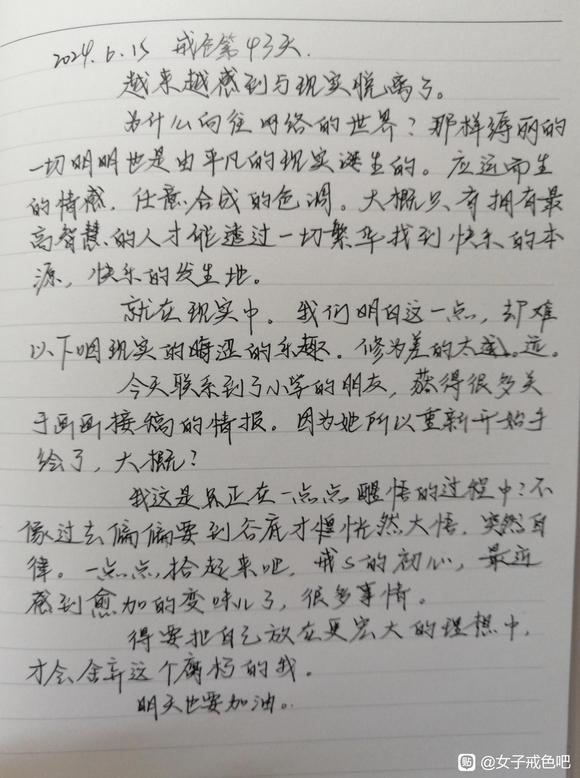 2024.6.15 戒色第43天.
越来越感到与现实脱离了。
为什么向往网络的世界？那样缛丽的
一切明明也是由平凡的现实诞生的。应运而生
的情感，任意合成的色调。大概只有拥有最
高智慧的人才能透过一切繁华找到快乐的本
源，快乐的发生地。
就在现实中。我们明白这一点，却难
以下咽现实的晦涩的乐趣。修为差的太远。
今天联系到了小学的朋友，获得很多关
于画画接稿的情报。因为她所以重新开始手
绘了，大概？
我这是只正在一点点醒悟的过程中？不
像过去偏偏要到谷底才恍然大悟，突然自
律。一点点，拾起来吧，戒s的初心，最近
感到愈加的变味儿了，很多事情。
得要把自己放在更宏大的理想中，
才会舍弃这个腐朽的我。
明天也要加油。
贴 @女子戒色吧